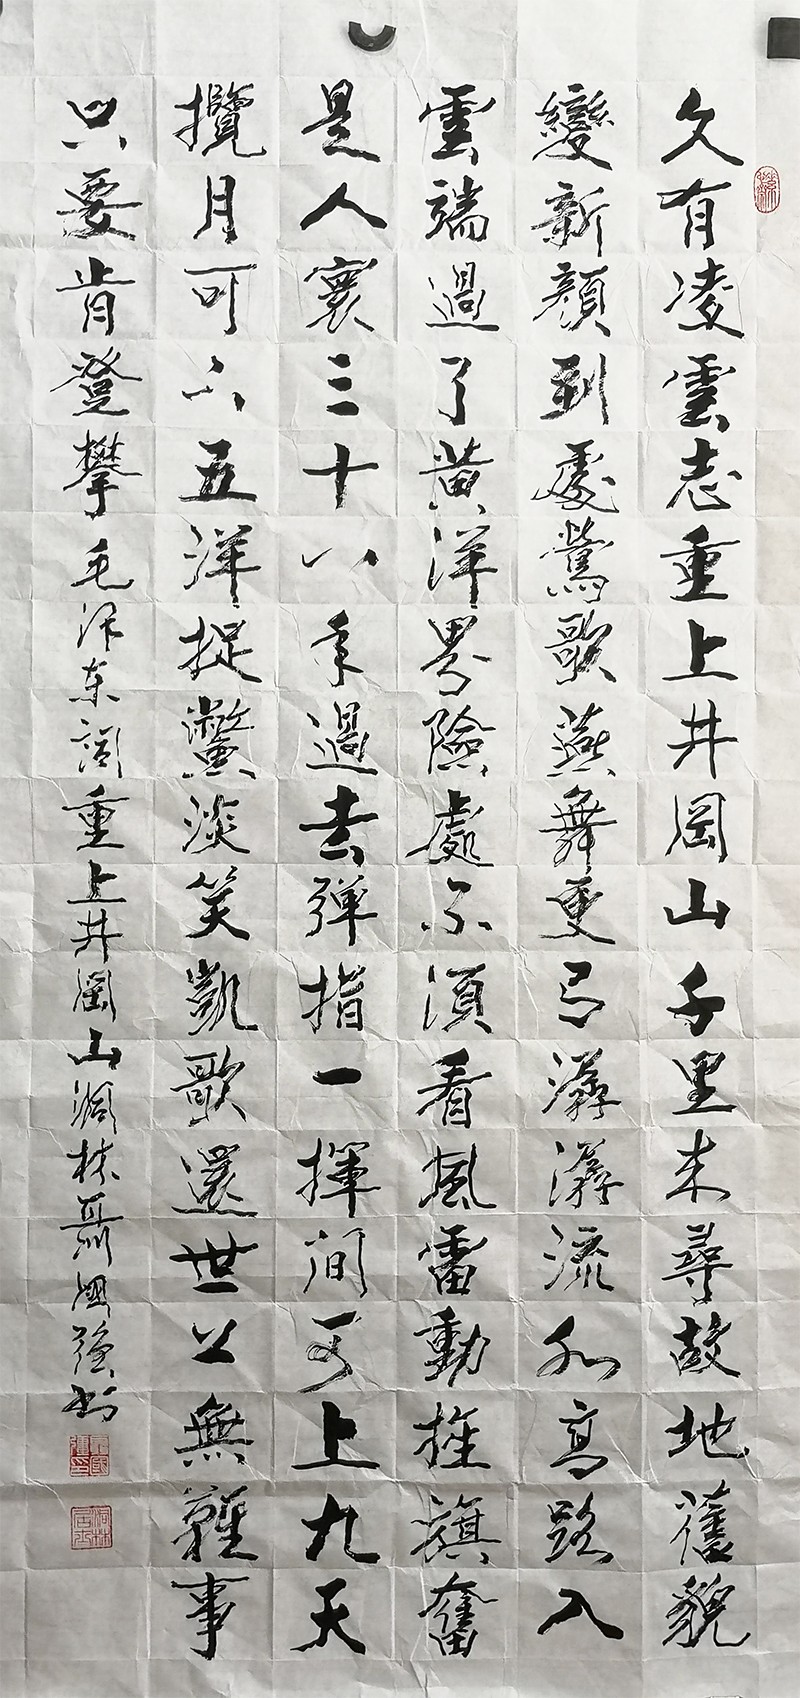 久有凌雲志重上井岡山千里來尋故地舊貌
變新顏到處鶯歌燕舞更有潺潺流水高路入
雲端過了黃洋界險處不須看風雷動旌旗奮
是人寰三十八年過去彈指一揮間可上九天
攬月可下五洋捉鱉談笑凱歌還世上無難事
只要肯登攀毛澤東詞重上井岡山澗林聶國強書